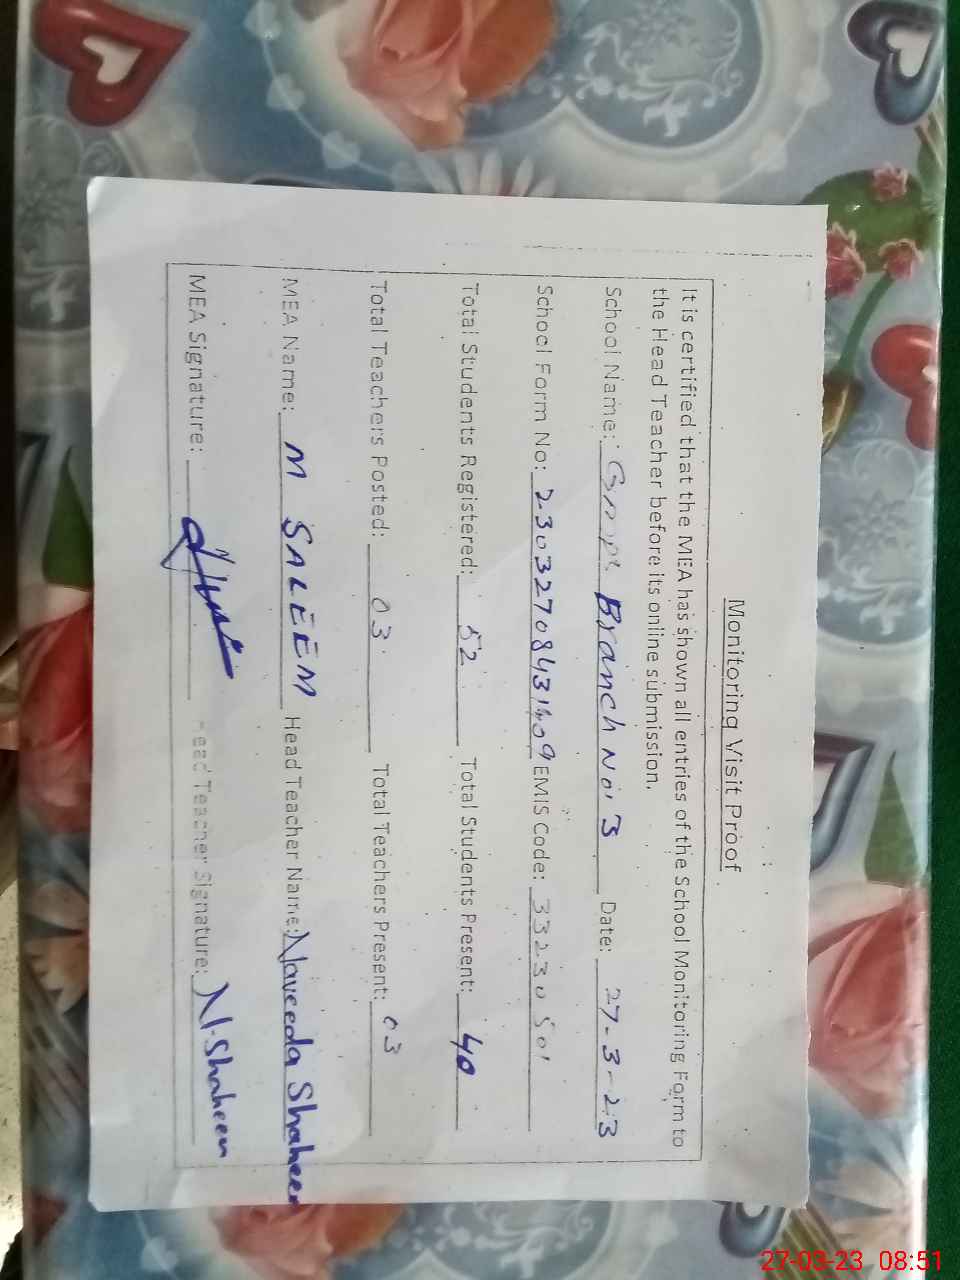 Monitoring Visit Proof
It is certified that the MEA has shown all entries of the School Monitoring Form to
the Head Teacher before its online submission.
School Name: Branch No: 3 Date: 27-3-23
School Form No: 23032708431409 EMIS Code: 33230501
Total Students Registered: 52 Total Students Present: 40
Total Teachers Posted: 03 Total Teachers Present: 03
MEA Name: M SALEEM Head Teacher Name: Naveeda Shaheen
MEA Signature: Head Teacher Signature: N.Shaheen
27-03-23 08:51